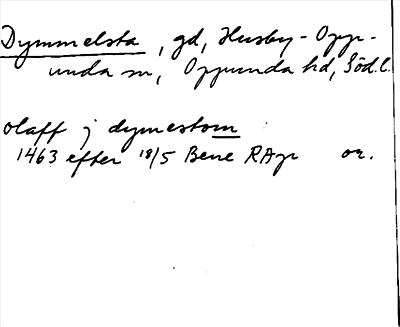 Dymmelsta, gd, Husby-Opp-
unda sn, Oppunda hd, Södl.
olaff j dymestom
1463 efter 18/5 Bene RAp or.